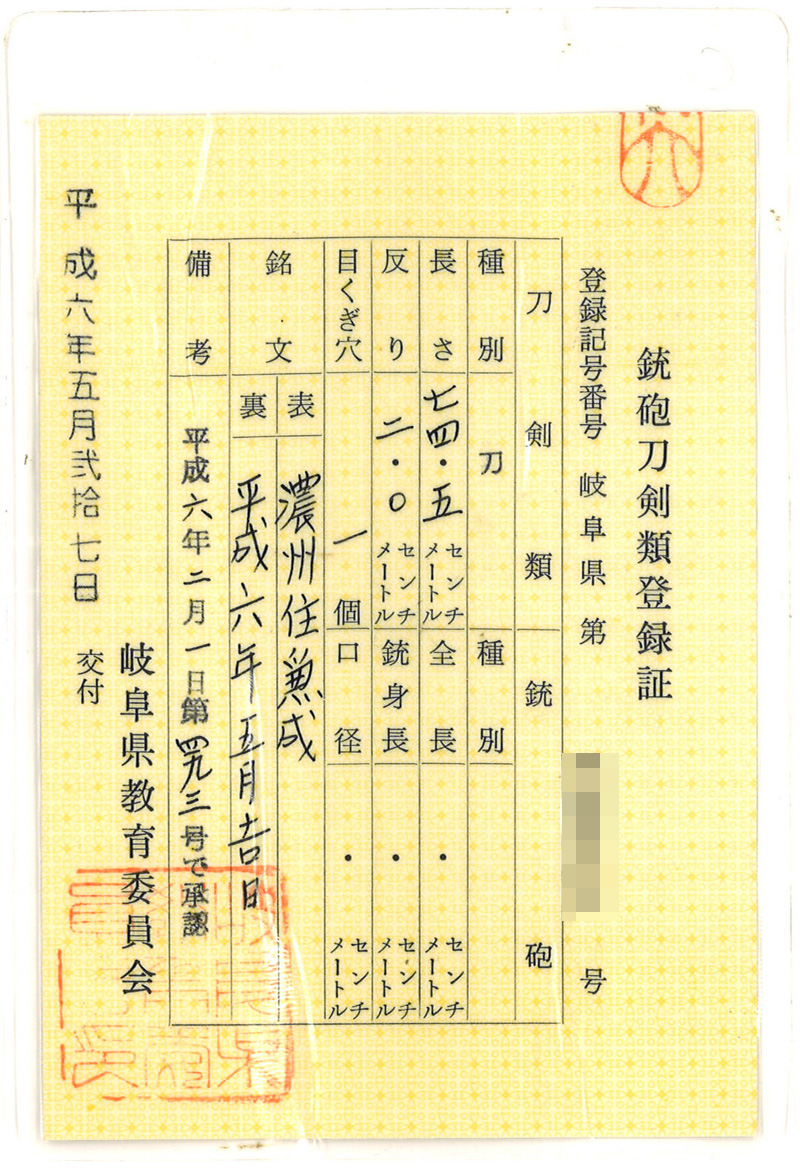 銃砲刀剣類登録証
登録記号番号 岐阜県第 号
刀剣類 銃砲
種別 刀 種別
長さ 七四・五 センチメートル 全長 ・ センチメートル
反り 二・〇 センチメートル 銃身長 ・ センチメートル
目くぎ穴 一個 口径 ・ センチメートル
銘文 表 濃州住兼成
裏 平成六年五月吉日
備考 平成六年二月一日第四九三号で承認
岐阜県教育委員会
平成六年五月弐拾七日 交付